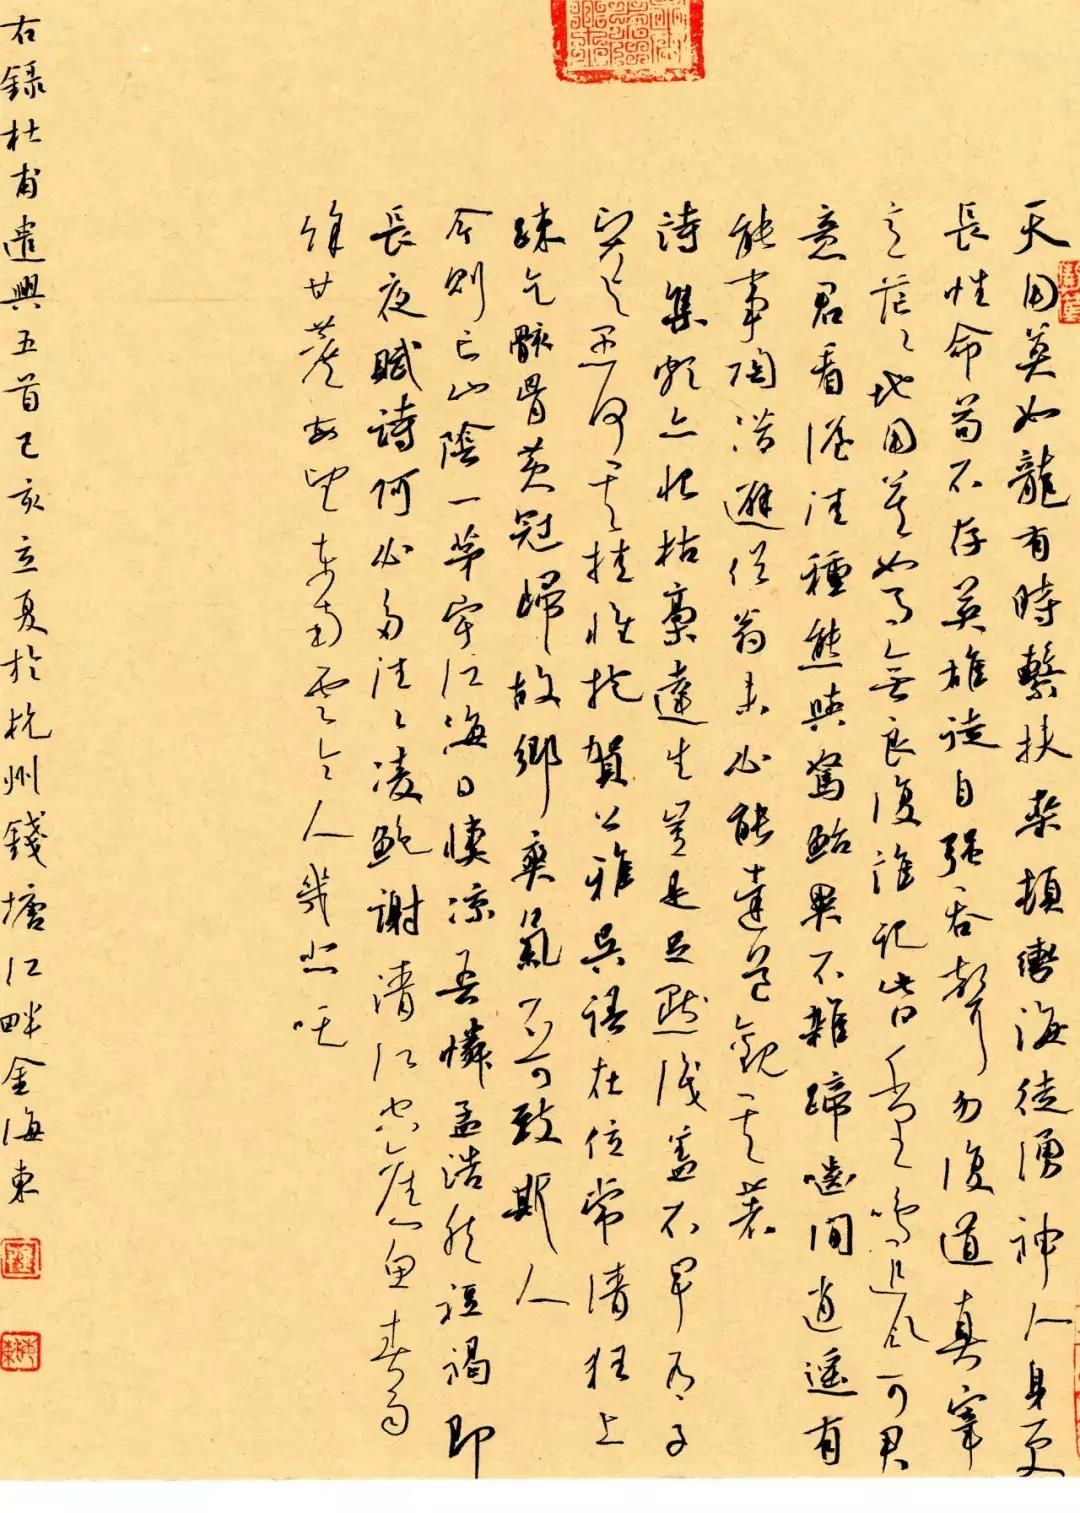 天用莫如龍有時繫扶桑頓轡海徒湧神人身更
長性命苟不存英雄徒自強吞聲勿復道真宰
意茫〻地用莫如馬無良復誰記此日千里鳴追風可君
意君看渥洼種態與駑駘異不雜蹄嚙間逍遙有
能事陶潛避俗翁未必能達道觀其著
詩集頗亦恨枯槁達生豈是足默識蓋不早有子
賢與愚何其掛懷抱賀公雅吳語在位常清狂上
疎乞骸骨黃冠歸故鄉爽氣不可致斯人
今則亡山陰一茅宇江海日悽涼吾憐孟浩然裋褐即
長夜賦詩何必多往〻凌鮑謝清江空舊魚春雨
餘甘蔗每望東南雲令人幾悲吒
右錄杜甫遣興五首己亥立夏於杭州錢塘江畔金海東